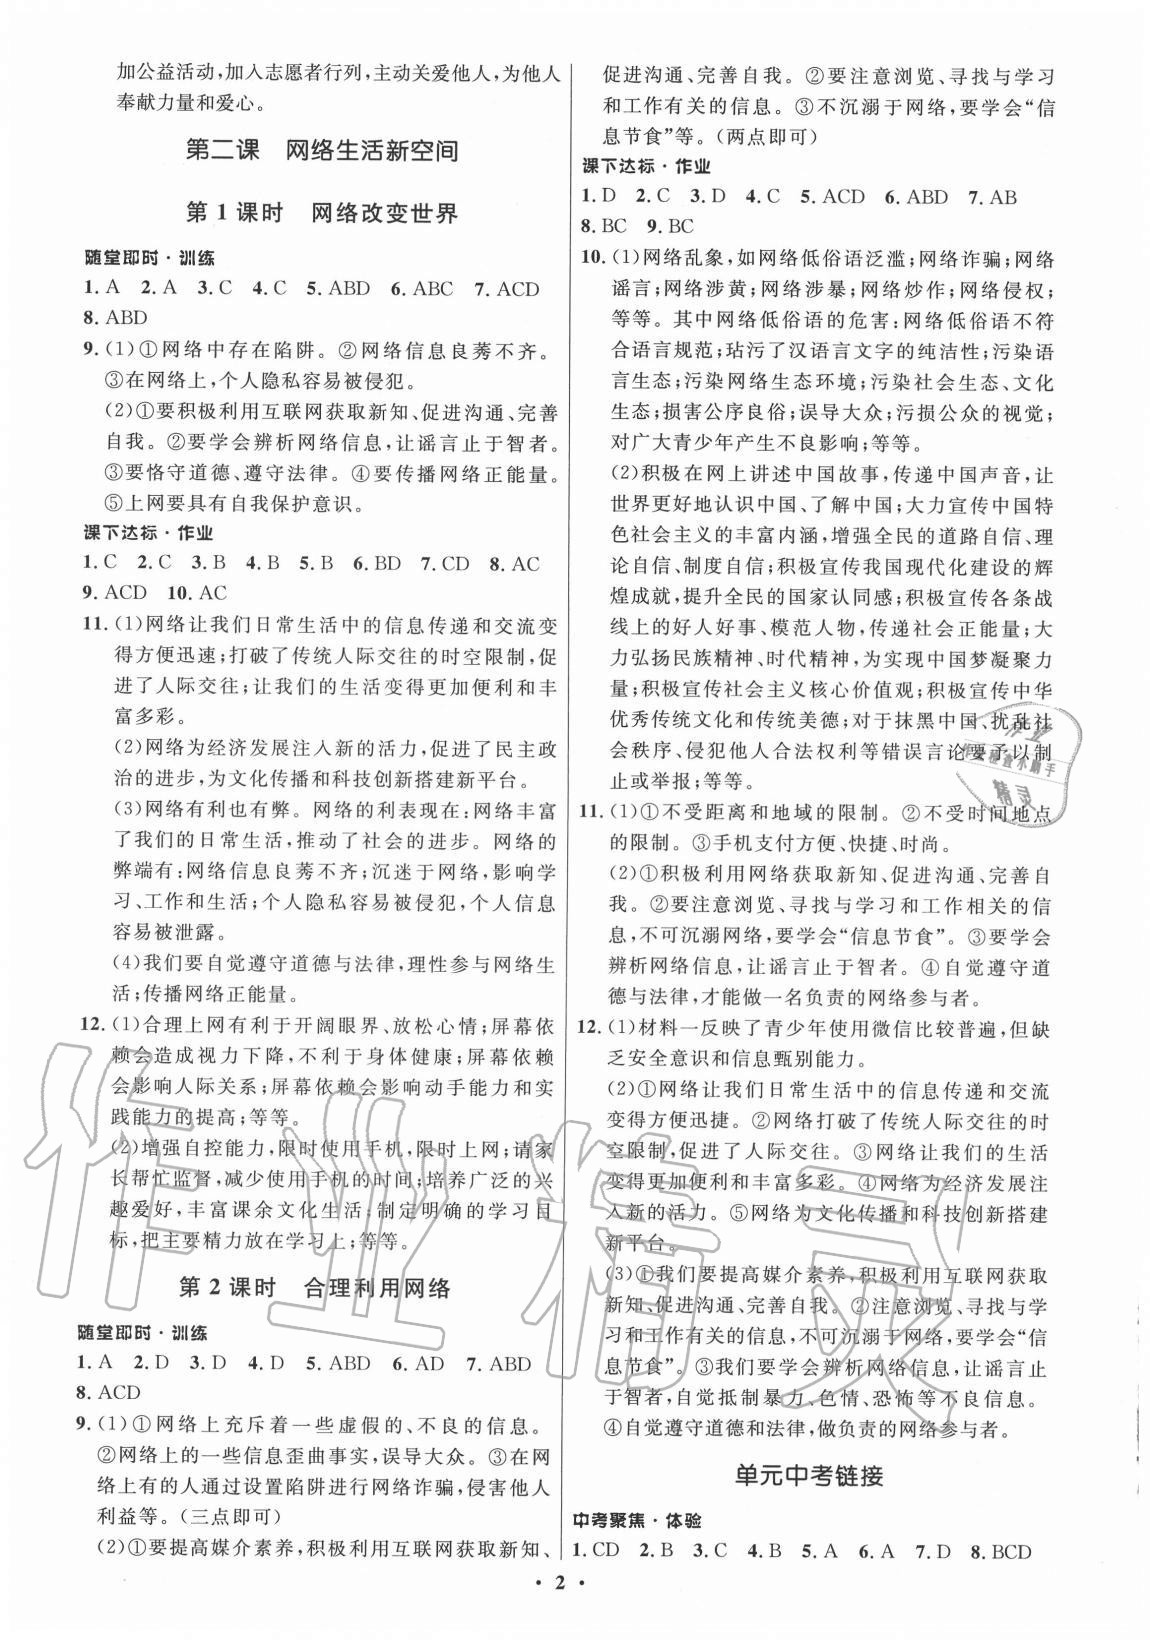 加公益活动,加入志愿者行列,主动关爱他人,为他人
奉献力量和爱心。
第二课 网络生活新空间
第1课时 网络改变世界
随堂即时·训练
1. A 2. A 3. C 4. C 5. ABD 6. ABC 7. ACD
8. ABD
9. (1)①网络中存在陷阱。②网络信息良莠不齐。
③在网络上,个人隐私容易被侵犯。
(2)①要积极利用互联网获取新知、促进沟通、完善
自我。②要学会辨析网络信息,让谣言止于智者。
③要恪守道德、遵守法律。④要传播网络正能量。
⑤上网要具有自我保护意识。
课下达标·作业
1. C 2. C 3. B 4. B 5. B 6. BD 7. CD 8. AC
9. ACD 10. AC
11. (1)网络让我们日常生活中的信息传递和交流变
得方便迅速;打破了传统人际交往的时空限制,促
进了人际交往;让我们的生活变得更加便利和丰
富多彩。
(2)网络为经济发展注入新的活力,促进了民主政
治的进步,为文化传播和科技创新搭建新平台。
(3)网络有利也有弊。网络的利表现在:网络丰富
了我们的日常生活,推动了社会的进步。网络的
弊端有:网络信息良莠不齐;沉迷于网络,影响学
习、工作和生活;个人隐私容易被侵犯,个人信息
容易被泄露。
(4)我们要自觉遵守道德与法律,理性参与网络生
活;传播网络正能量。
12. (1)合理上网有利于开阔眼界、放松心情;屏幕依
赖会造成视力下降,不利于身体健康;屏幕依赖
会影响人际关系;屏幕依赖会影响动手能力和实
践能力的提高;等等。
(2)增强自控能力,限时使用手机,限时上网;请家
长帮忙监督,减少使用手机的时间;培养广泛的兴
趣爱好,丰富课余文化生活;制定明确的学习目
标,把主要精力放在学习上;等等。
第2课时 合理利用网络
随堂即时·训练
1. A 2. D 3. D 4. D 5. ABD 6. AD 7. ABD
8. ACD
9. (1)①网络上充斥着一些虚假的、不良的信息。
②网络上的一些信息歪曲事实,误导大众。③网
络上有的人通过设置陷阱进行网络诈骗,侵害他人
利益等。(三点即可)
(2)①要提高媒介素养,积极利用互联网获取新知、
促进沟通、完善自我。②要注意浏览、寻找与学习
和工作有关的信息。③不沉溺于网络,要学会“信
息节食”等。(两点即可)
课下达标·作业
1. D 2. C 3. D 4. C 5. ACD 6. ABD 7. AB
8. BC 9. BC
10. (1)网络乱象,如网络低俗语泛滥;网络诈骗;网络
谣言;网络涉黄;网络涉暴;网络炒作;网络侵权;
等等。其中网络低俗语的危害:网络低俗语不符
合语言规范;玷污了汉语言文字的纯洁性;污染语
言生态;污染网络生态环境;污染社会生态、文化
生态;损害公序良俗;误导大众;污损公众的视觉;
对广大青少年产生不良影响;等等。
(2)积极在网上讲述中国故事,传递中国声音,让
世界更好地认识中国、了解中国;大力宣传中国特
色社会主义的丰富内涵,增强全民的道路自信、理
论自信、制度自信;积极宣传我国现代化建设的辉
煌成就,提升全民的国家认同感;积极宣传各条战
线上的好人好事、模范人物,传递社会正能量;大
力弘扬民族精神、时代精神,为实现中国梦凝聚力
量;积极宣传社会主义核心价值观;积极宣传中华
优秀传统文化和传统美德;对于抹黑中国、扰乱社
会秩序、侵犯他人合法权利等错误言论要予以制
止或举报;等等。
11. (1)①不受距离和地域的限制。②不受时间地点
的限制。③手机支付方便、快捷、时尚。
(2)①积极利用网络获取新知、促进沟通、完善自
我。②要注意浏览、寻找与学习和工作相关的信
息,不可沉溺网络,要学会“信息节食”。③要学会
辨析网络信息,让谣言止于智者。④自觉遵守道
德与法律,才能做一名负责的网络参与者。
12. (1)材料一反映了青少年使用微信比较普遍,但缺
乏安全意识和信息甄别能力。
(2)①网络让我们日常生活中的信息传递和交流
变得方便迅捷。②网络打破了传统人际交往的时
空限制,促进了人际交往。③网络让我们的生活
变得更加便利和丰富多彩。④网络为经济发展注
入新的活力。⑤网络为文化传播和科技创新搭建
新平台。
(3)①我们要提高媒介素养,积极利用互联网获取
新知、促进沟通、完善自我。②注意浏览、寻找与学
习和工作有关的信息,不可沉溺于网络,要学会“信
息节食”。③我们要学会辨析网络信息,让谣言止
于智者,自觉抵制暴力、色情、恐怖等不良信息。
④自觉遵守道德和法律,做负责的网络参与者。
单元中考链接
中考聚焦·体验
1. CD 2. B 3. C 4. B 5. A 6. A 7. D 8. BCD
· 2 ·
作业精灵
作业
精灵